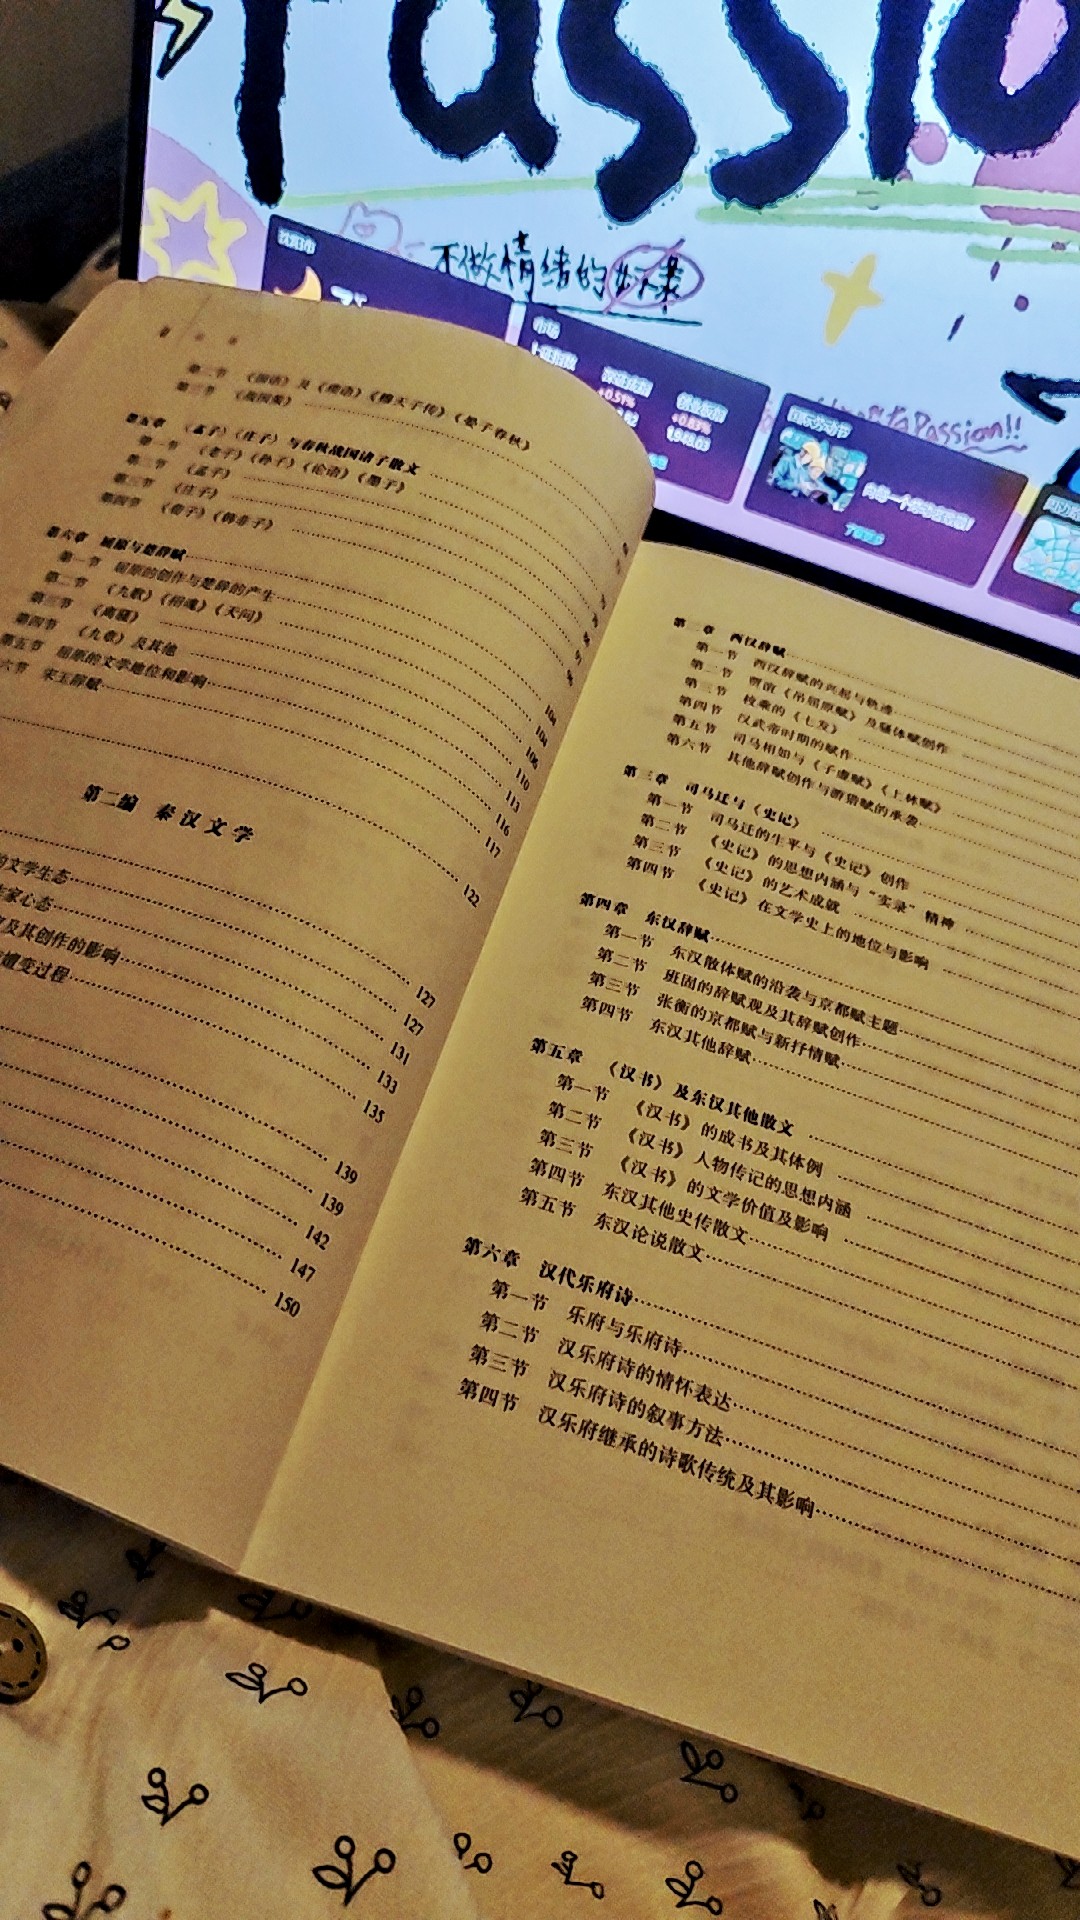 Passio
不做情绪的奴隶
Passion!!
市场
+0.51%
+0.83%
1,948.03
国际劳动节
第二节 《国语》及《穆天子传》《晏子春秋》
第三节 《战国策》
第五章 《孟子》《庄子》与春秋战国诸子散文
第一节 《老子》《孙子》《论语》《墨子》
第二节 《孟子》
第三节 《庄子》
第四节 《荀子》《韩非子》
第六章 屈原与楚辞赋
第一节 屈原的创作与楚辞的产生 104
第二节 《九歌》《招魂》《天问》 106
第三节 《离骚》 110
第四节 《九章》及其他 113
第五节 屈原的文学地位和影响 116
六节 宋玉辞赋 117
122
第二编 秦汉文学
的文学生态 127
作家心态 131
及其创作的影响 133
嬗变过程 135
139
139
142
147
150
第二章 西汉辞赋
第一节 西汉辞赋的兴起与轨迹
第二节 贾谊《吊屈原赋》及骚体赋创作
第三节 枚乘的《七发》
第四节 汉武帝时期的赋作
第五节 司马相如与《子虚赋》《上林赋》
第六节 其他辞赋创作与游猎赋的承袭
第三章 司马迁与《史记》
第一节 司马迁的生平与《史记》创作
第二节 《史记》的思想内涵与“实录”精神
第三节 《史记》的艺术成就
第四节 《史记》在文学史上的地位与影响
第四章 东汉辞赋
第一节 东汉散体赋的沿袭与京都赋主题
第二节 班固的辞赋观及其辞赋创作
第三节 张衡的京都赋与新抒情赋
第四节 东汉其他辞赋
第五章 《汉书》及东汉其他散文
第一节 《汉书》的成书及其体例
第二节 《汉书》人物传记的思想内涵
第三节 《汉书》的文学价值及影响
第四节 东汉其他史传散文
第五节 东汉论说散文
第六章 汉代乐府诗
第一节 乐府与乐府诗
第二节 汉乐府诗的情怀表达
第三节 汉乐府诗的叙事方法
第四节 汉乐府继承的诗歌传统及其影响